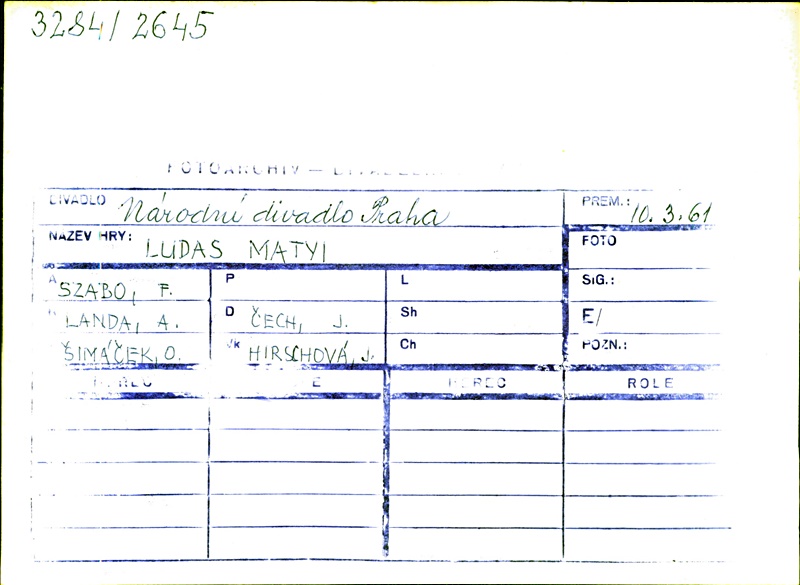 3284/2645
FOTOARCHIV —
DIVADLO Národní divadlo Praha PREM.: 10.3.61
NÁZEV HRY: LUDAS MATYI FOTO
A SZABO, F. P L SIG.:
LANDA, A. D ČECH, J. Sh E/
ŠIMÁČEK, O. Vk HIRSCHOVÁ, J. Ch POZN.:
HEREC HEREC ROLE